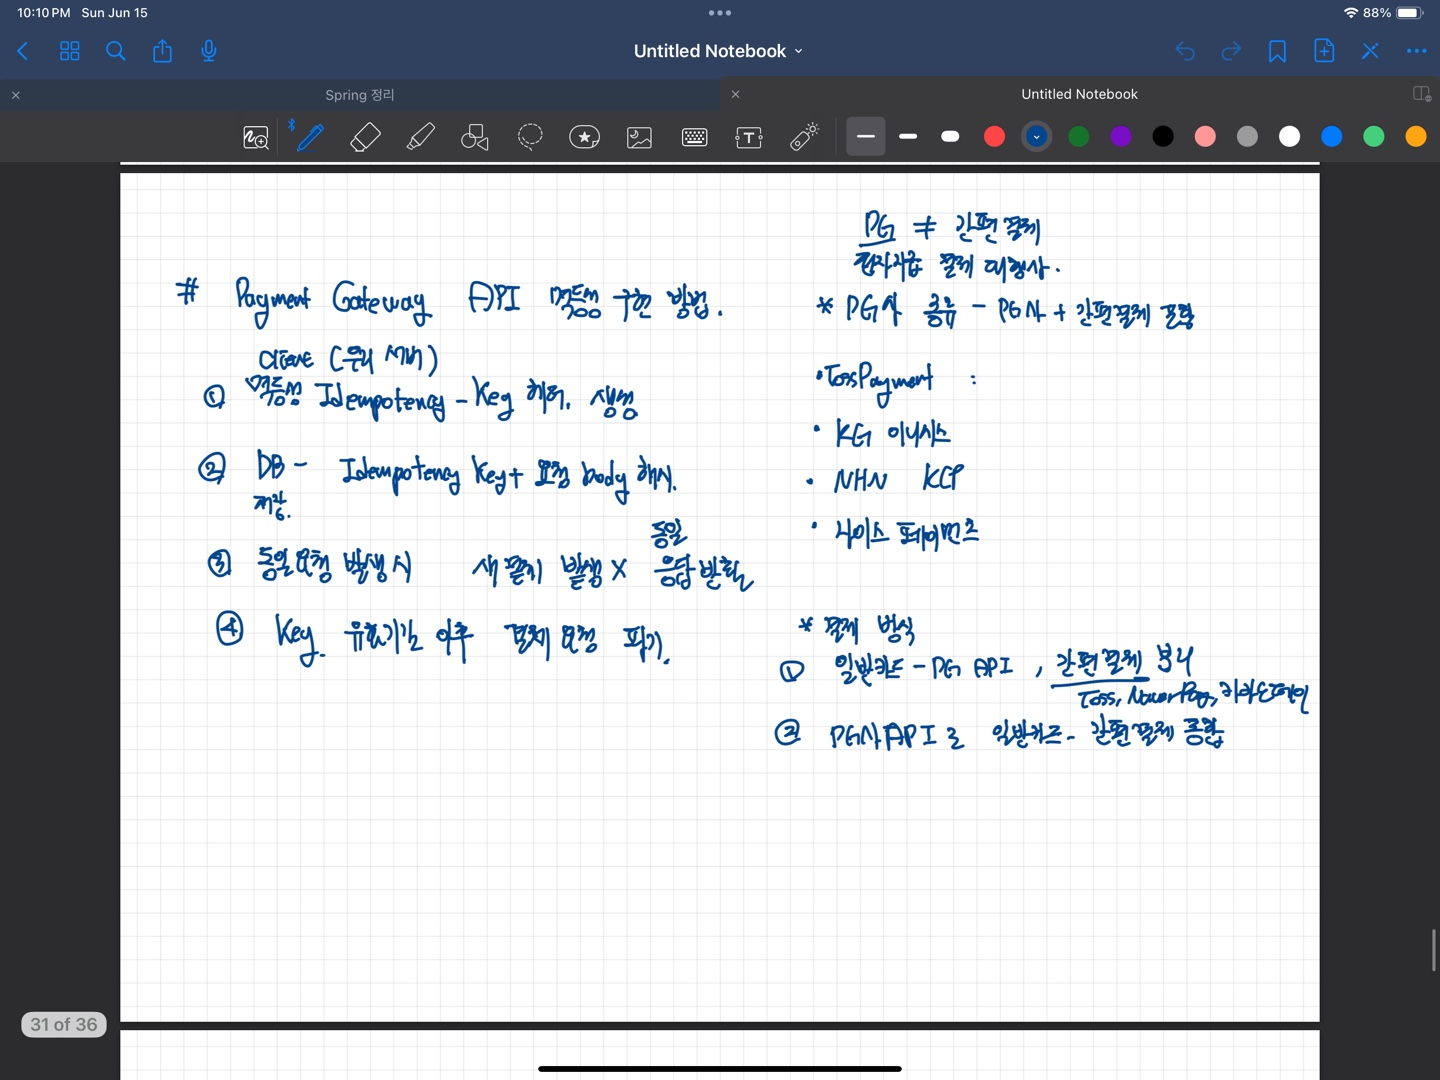 10:10 PM Sun Jun 15
88%
Untitled Notebook
Spring 정리
Untitled Notebook
T
# Payment Gateway API 멱등성 구현 방법.
client (우리 서버)
① 멱등성 Idempotency-Key 헤더. 생성
② DB - Idempotency Key + 요청 body 해시.
저장.
③ 동일요청 발생시 새 결제 발생 X 동일 응답 반환
④ Key 유효기간 이후 결제 요청 파기.
PG ≠ 간편결제
전자지급 결제 대행사.
* PG사 종류 - PG사 + 간편결제 포함
• TossPayment :
• KG 이니시스
• NHN KCP
• 나이스 페이먼츠
* 결제 방식
① 일반카드 - PG API , 간편결제 분리
Toss, NaverPay, 카카오페이
② PG사 API로 일반카드 - 간편결제 통합
31 of 36